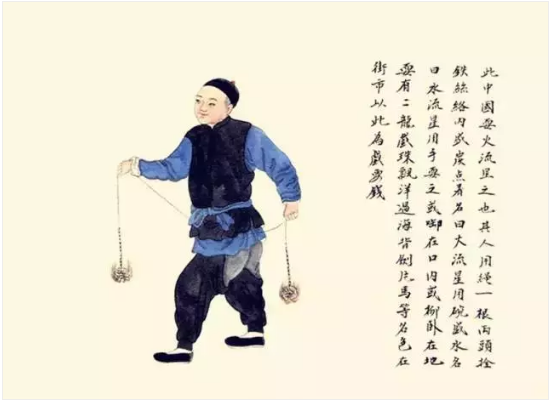 此中國耍火流星之也其人用繩一根兩頭拴
鉄絲絡內或炭点着名曰火流星用碗盛水名
曰水流星用手耍之或啣在口內或仰卧在地
耍有二龍戲珠飄洋過海背劍片馬等名色在
街市以此為戲覓錢